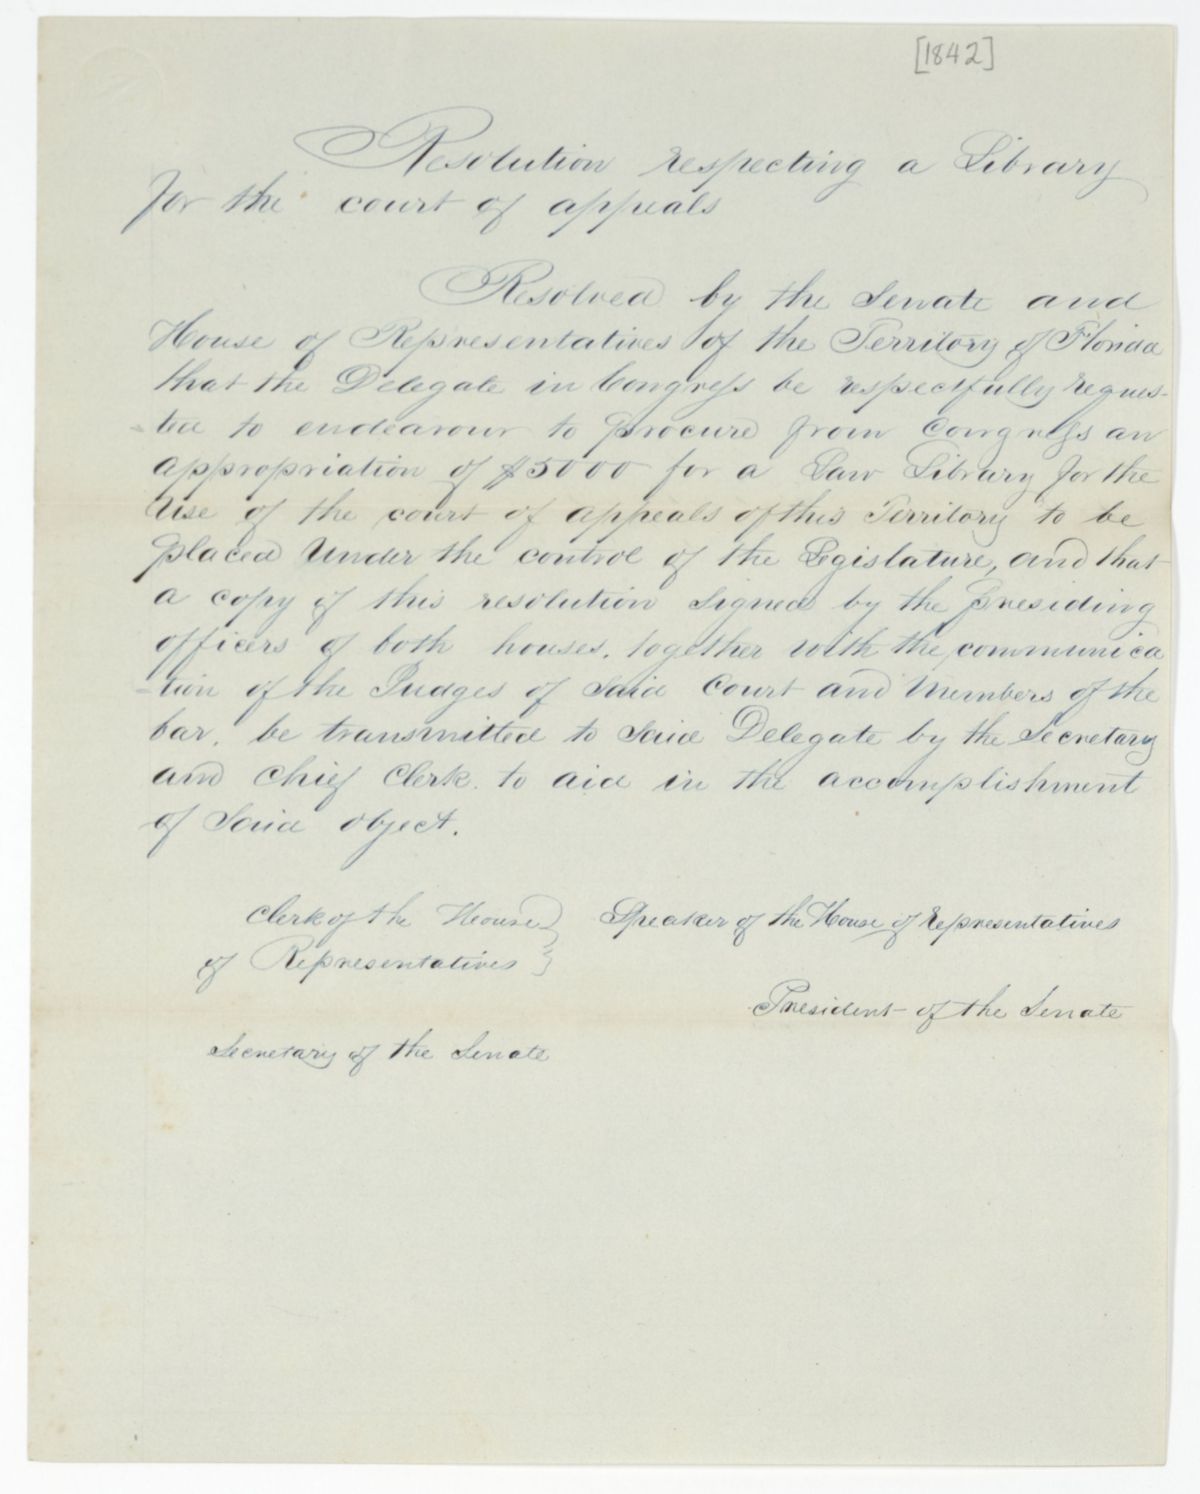 [1842]
Resolution respecting a Library
for the court of appeals
Resolved by the Senate and
House of Representatives of the Territory of Florida
that the Delegate in Congress be respectfully reques-
ted to endeavour to procure from Congress an
appropriation of $5000 for a Law Library for the
Use of the court of appeals of this Territory to be
placed Under the control of the Legislature, and that
a copy of this resolution signed by the presiding
officers of both houses, together with the communica
-tion of the Judges of said Court and Members of the
bar, be transmitted to said Delegate by the Secretary
and Chief Clerk. to aid in the accomplishment
of said object.
Clerk of the House } Speaker of the House of Representatives
of Representatives }
President of the Senate
Secretary of the Senate